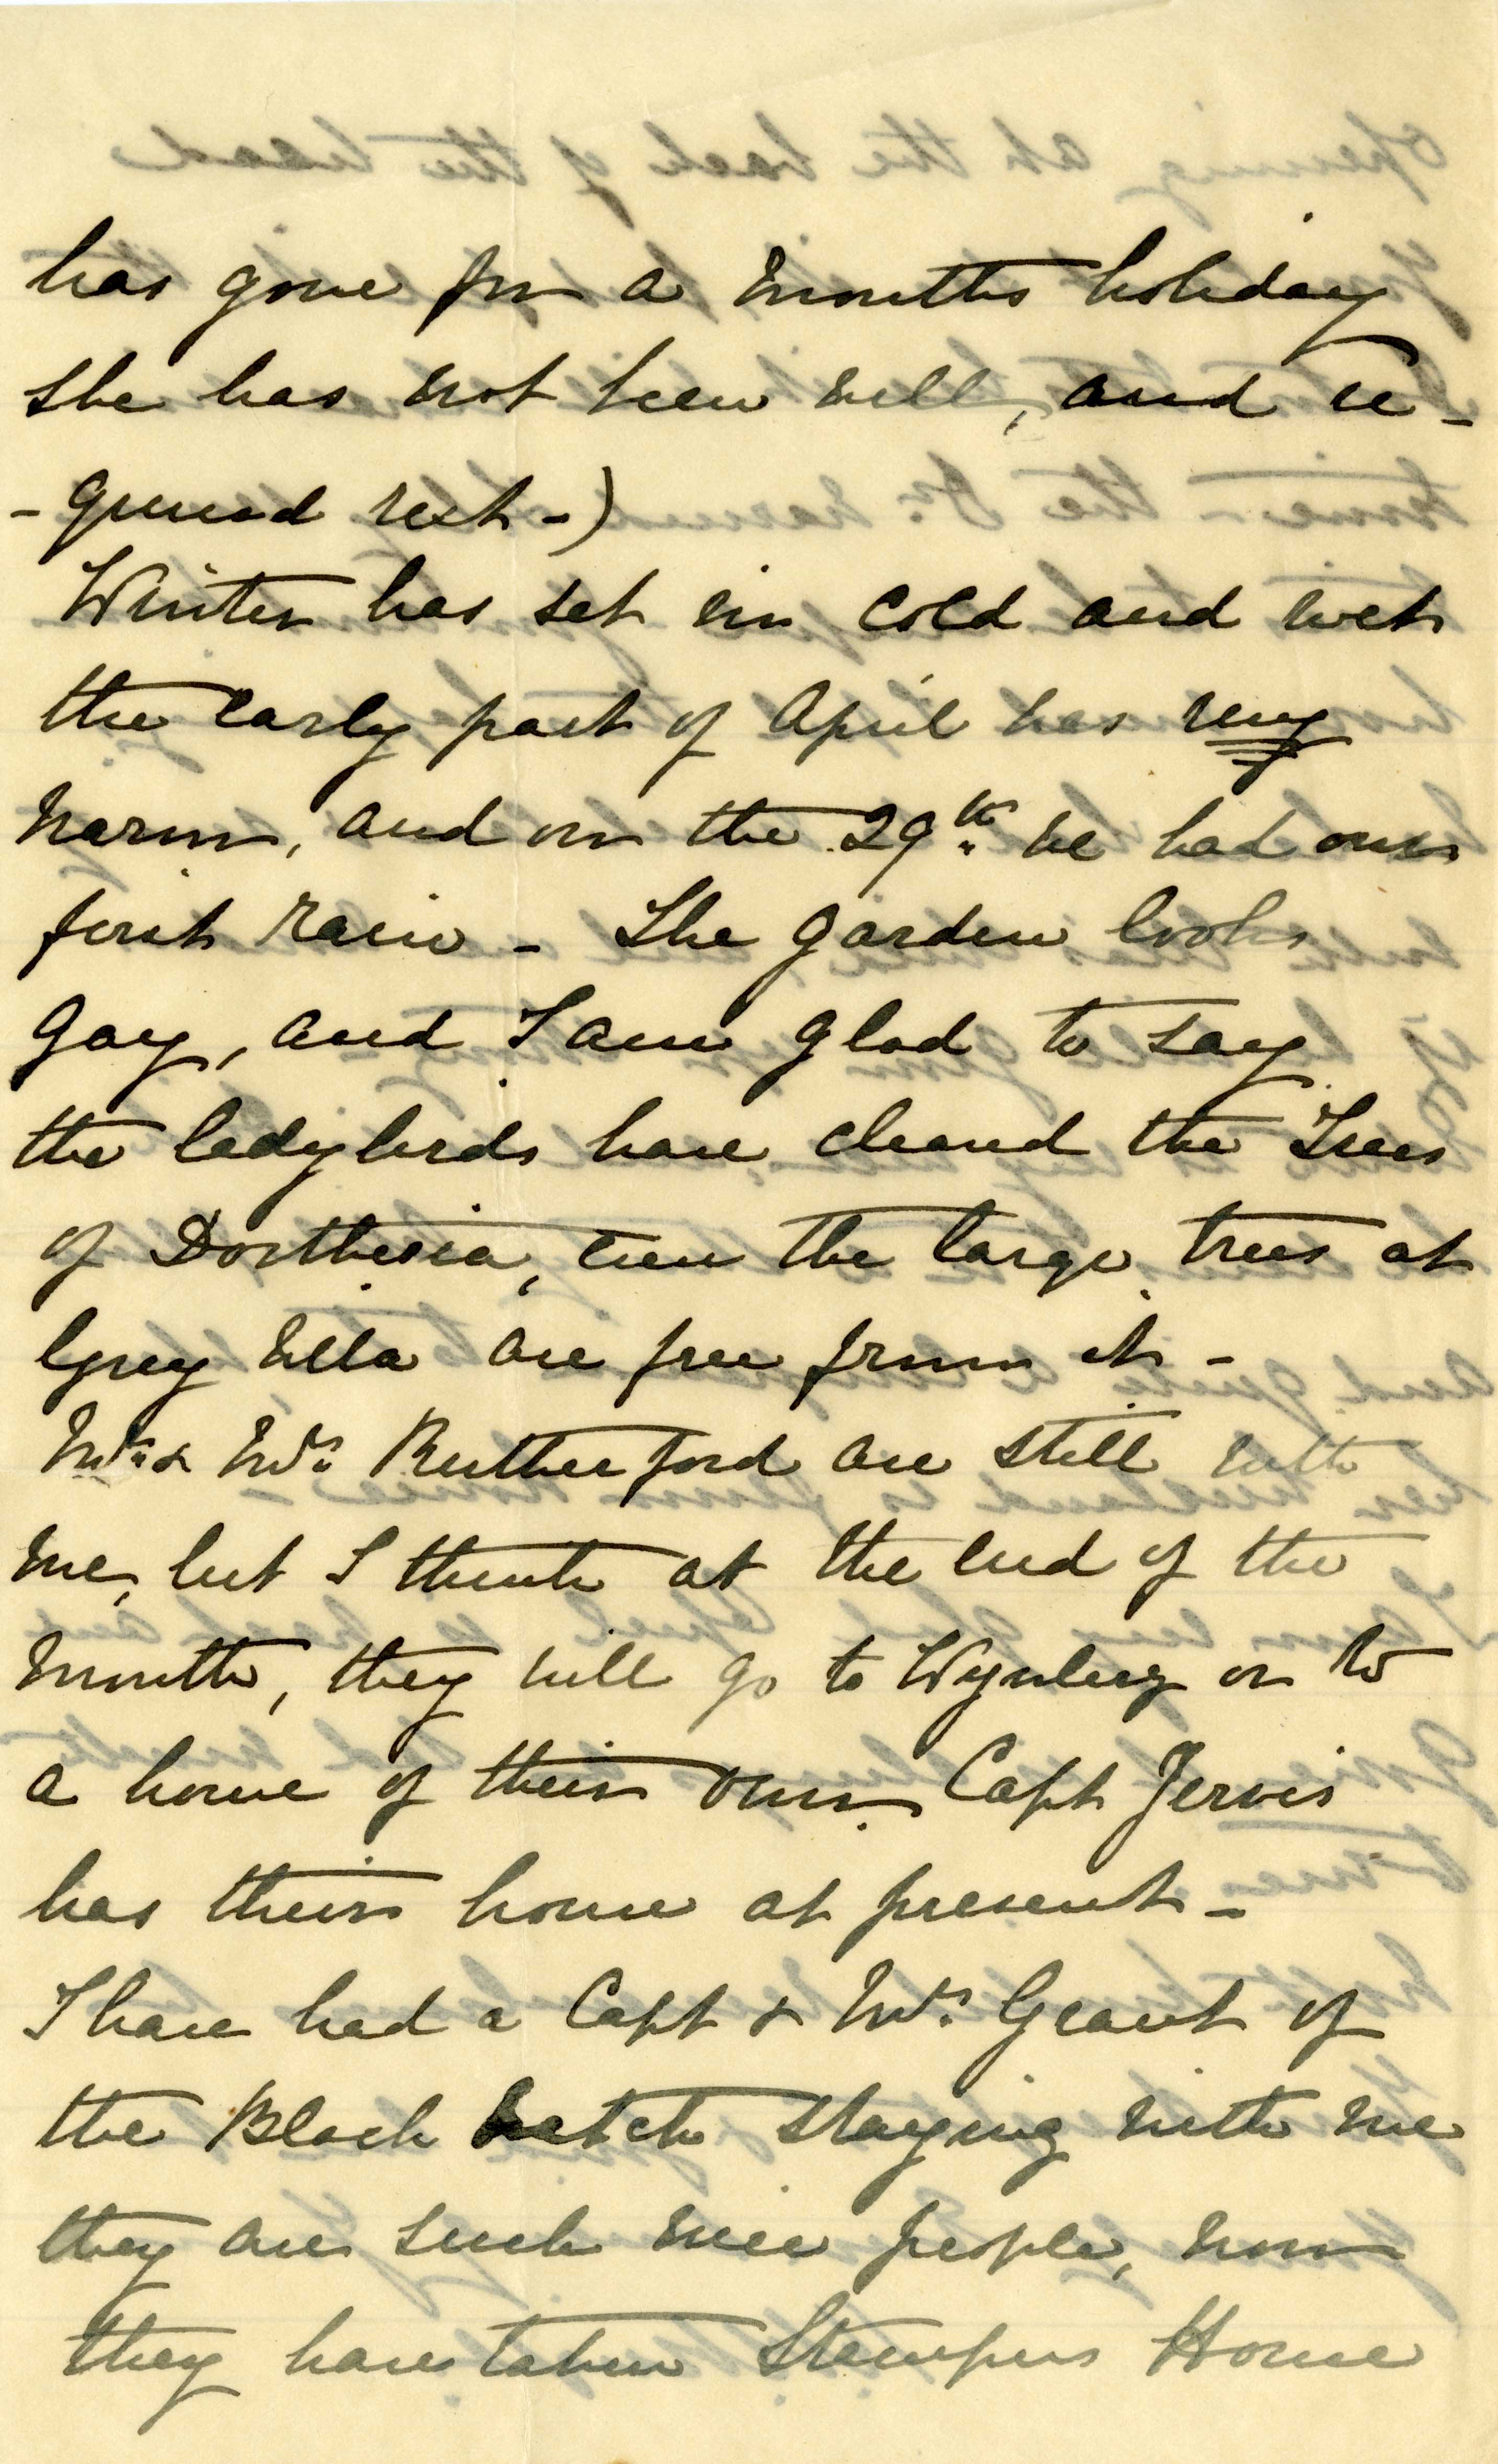 has gone for a months holiday
She has not been well, and re-
-quired rest -)
Winter has set in cold and wet
the early part of April was very
warm, and on the 29th. we had our
first rain - The garden looks
gay, and I am glad to say
the ladybirds have cleared the Trees
of Dorthesia, even the large trees at
Grey Villa are free from it -
Mr. & Mrs. Rutherford are still with
me, but I think at the end of the
month, they will go to Wynberg or to
a house of their own. Capt Jervis
has their house at present -
I have had a Capt & Mrs. Grant of
the Black Watch staying with me
they are such nice people, now
they have taken Stampers House